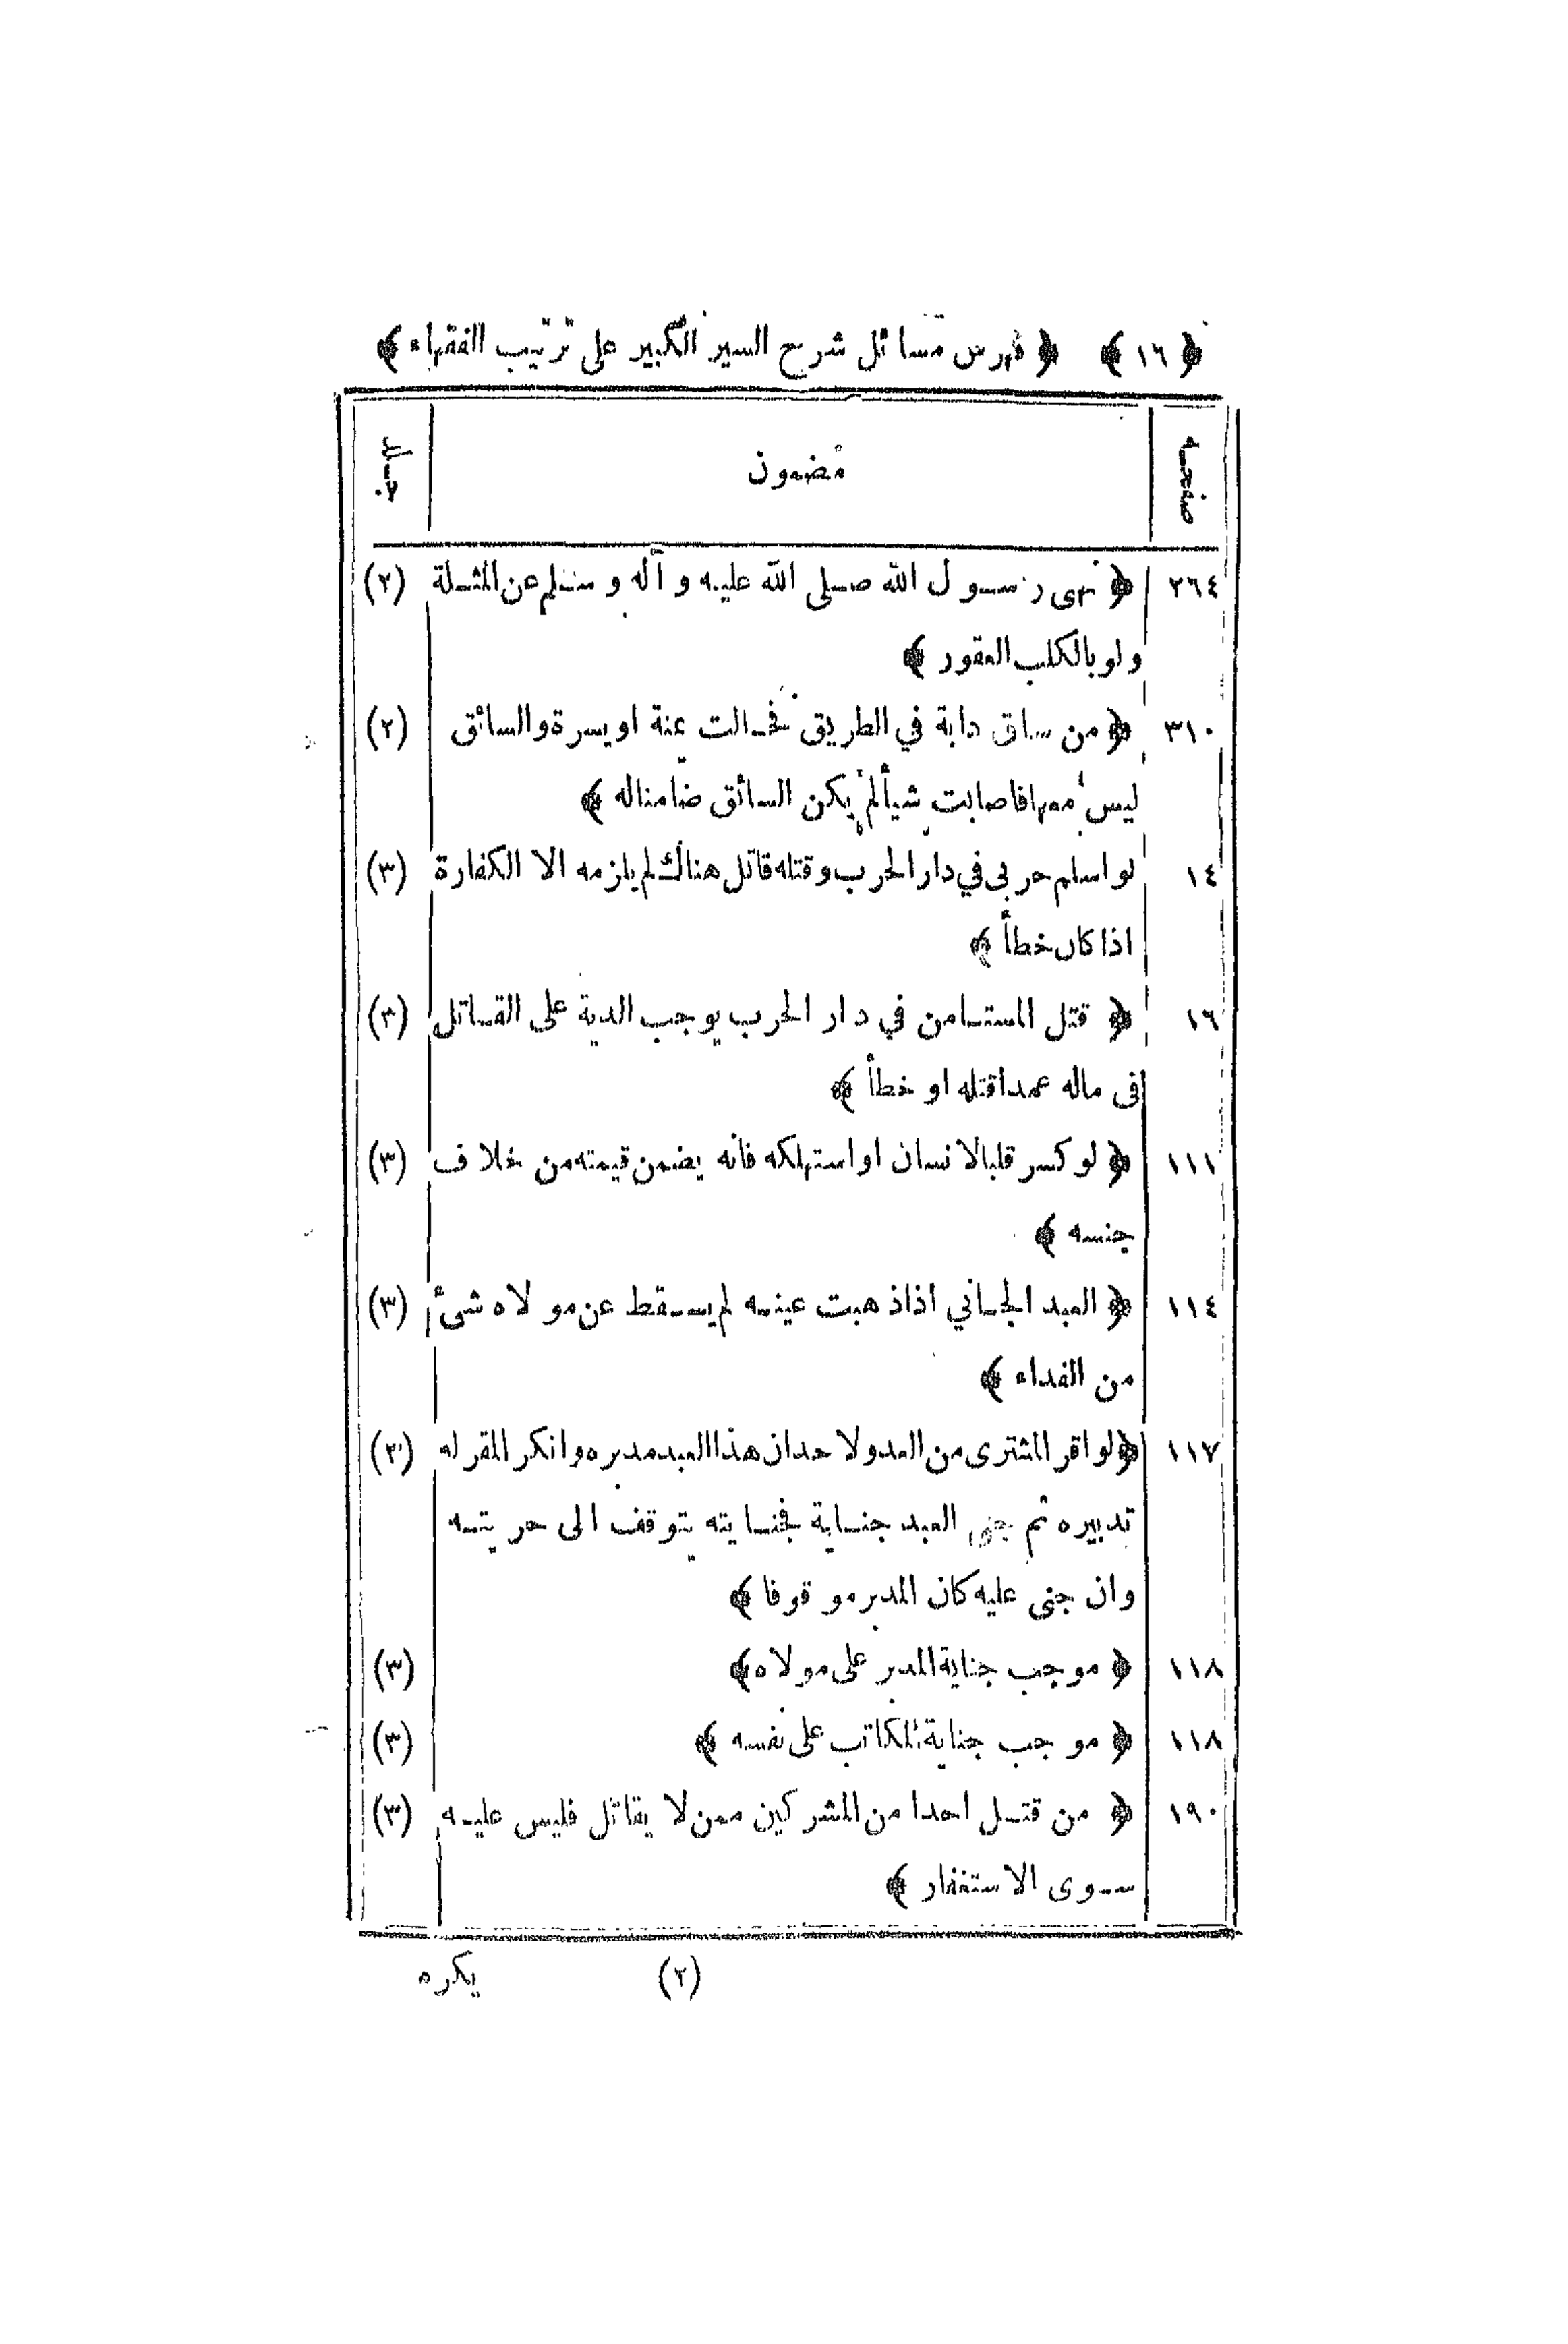 ﴿ ١٦ ﴾ ﴿ فهرس مسائل شرح السير الكبير على ترتيب الفقهاء ﴾
صفحه مضمون جلد
٢٦٤ ﴿ نهى رسول الله صلى الله عليه و آله و سلم عن المثلة (٢)
ولو بالكلب العقور ﴾
٣١٠ ﴿ من ساق دابة في الطريق فجالت يمنة او يسرة والسائق (٢)
ليس معها فاصابت شيأ لم يكن السائق ضامنا له ﴾
١٤ لو اسلم حربى في دار الحرب وقتله قاتل هناك لم يلزمه الا الكفارة (٣)
اذا كان خطأ ﴾
١٦ ﴿ قتل المستامن في دار الحرب يوجب الدية على القاتل (٣)
فى ماله عمدا قتله او خطأ ﴾
١١١ ﴿ لو كسر قلبا لانسان او استهلكه فانه يضمن قيمته من خلاف (٣)
جنسه ﴾
١١٤ ﴿ العبد الجاني اذا ذهبت عينه لم يسقط عن مولاه شئ (٣)
من الفداء ﴾
١١٧ ﴿ لو اقر المشترى من العدو لاحد ان هذا العبد مدبره وانكر المقر له (٣)
تدبيره ثم جنى العبد جناية فجنايته يتوقف الى حريته
وان جنى عليه كان المدبر موقوفا ﴾
١١٨ ﴿ موجب جناية المدبر على مولاه ﴾ (٣)
١١٨ ﴿ موجب جناية المكاتب على نفسه ﴾ (٣)
١٩٠ ﴿ من قتل احدا من المشركين ممن لا يقاتل فليس عليه (٣)
سوى الاستغفار ﴾
(٢) يكره